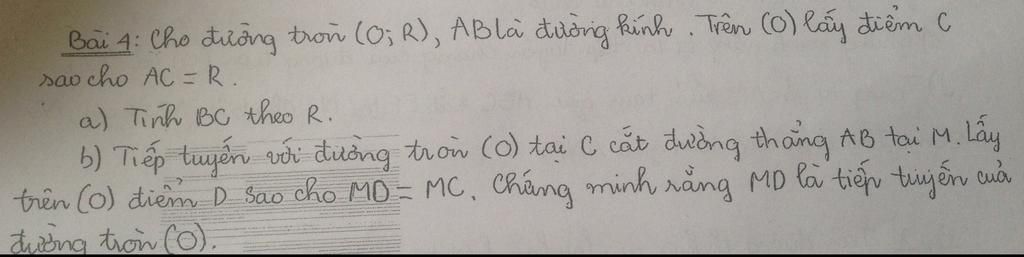 Bài 4: Cho đường tròn (O; R), AB là đường kính. Trên (O) lấy điểm C
sao cho AC = R.
a) Tính BC theo R.
b) Tiếp tuyến với đường tròn (O) tại C cắt đường thẳng AB tại M. Lấy
trên (O) điểm D sao cho MD = MC. Chứng minh rằng MD là tiếp tuyến của
đường tròn (O).